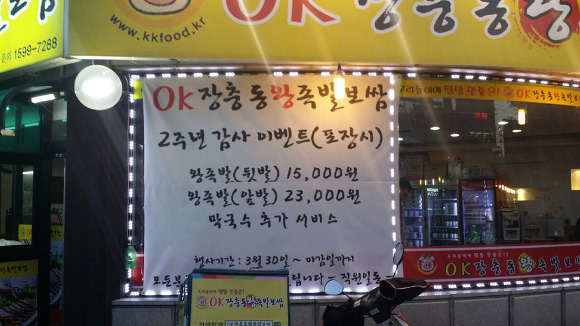 www.kkfood.kr
OK 장충동왕
문의 1599-7288
OK 장충동왕족발보쌈
2주년 감사 이벤트(포장시)
왕족발(뒷발) 15,000원
왕족발(앞발) 23,000원
막국수 추가 서비스
행사기간 : 3월 30일 ~ 마감일까지
모든분 립니다 - 직원일동 -
OK 장충동왕족발보쌈
OK 장충동왕족발보쌈
OK 장충동왕족발보쌈